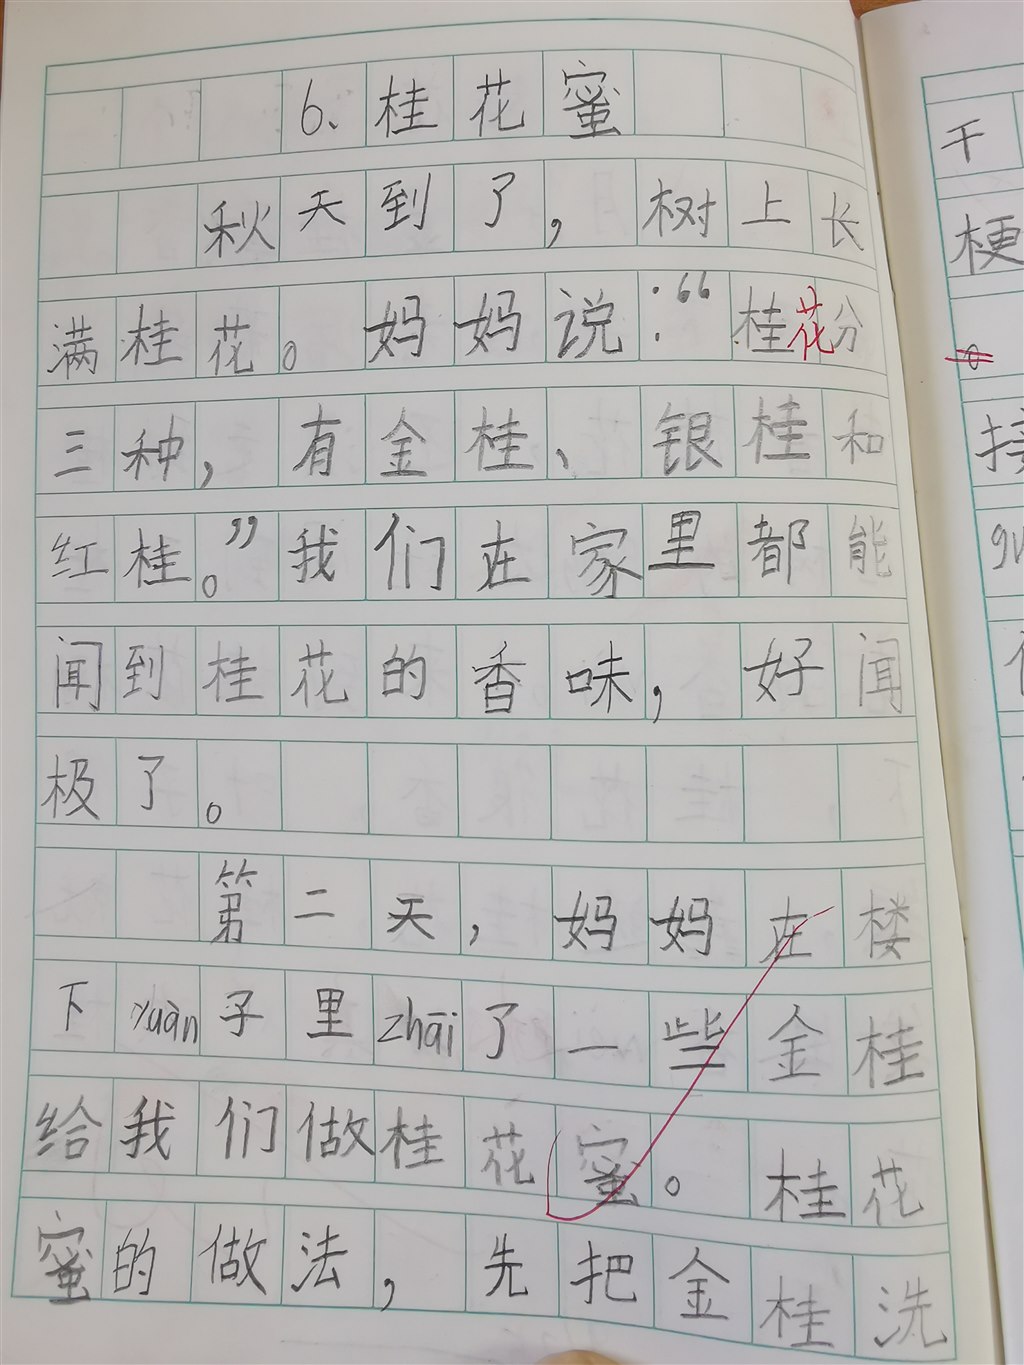 6、桂花蜜
秋天到了，树上长
满桂花。妈妈说：“桂花分
三种，有金桂、银桂和
红桂。”我们在家里都能
闻到桂花的香味，好闻
极了。
第二天，妈妈在楼
下yuàn子里zhāi了一些金桂
给我们做桂花蜜。桂花
蜜的做法，先把金桂洗
干
梗
。
接